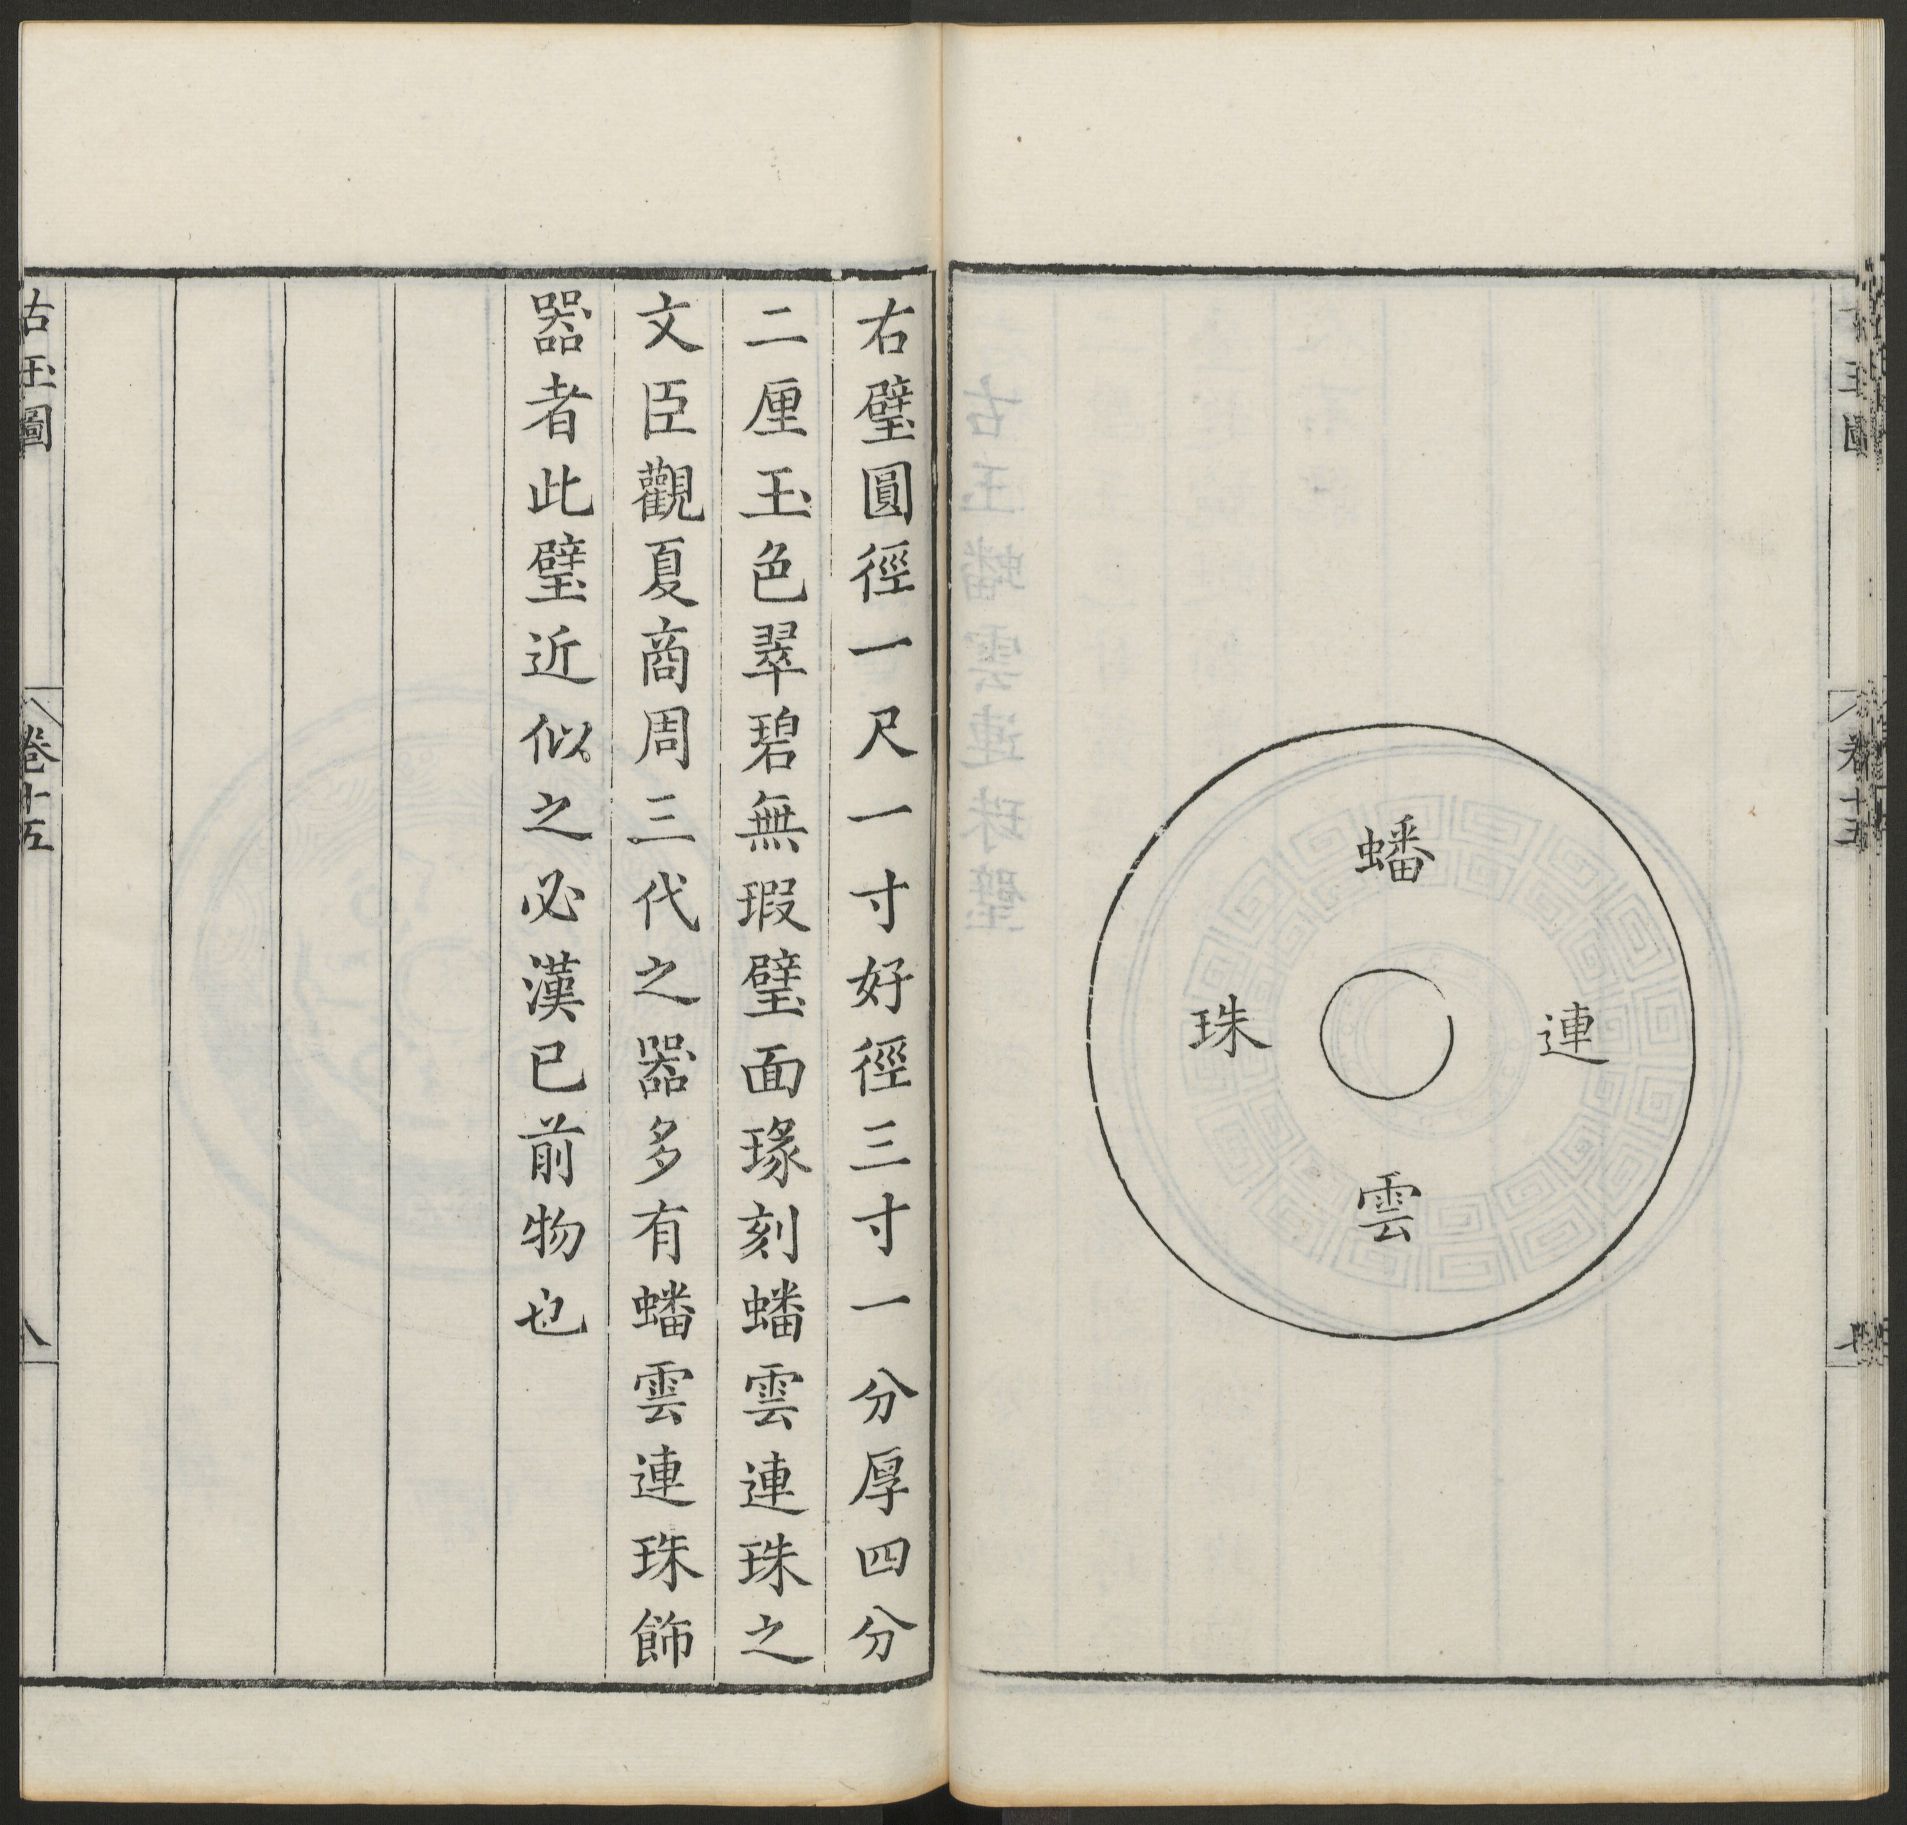 古玉圖
卷十五
七
蟠
雲
連
珠
右璧圓徑一尺一寸好徑三寸一分厚四分
二厘玉色翠碧無瑕璧面瑑刻蟠雲連珠之
文臣觀夏商周三代之器多有蟠雲連珠飾
器者此璧近似之必漢已前物也
古玉圖
卷十五
八